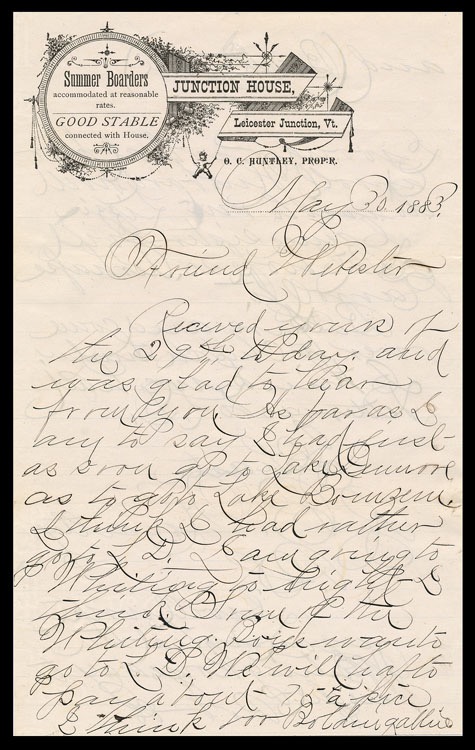 Summer Boarders
accommodated at reasonable
rates.
GOOD STABLE
connected with House.
JUNCTION HOUSE,
Leicester Junction, Vt.
O. C. HUNTLEY, PROP'R.
May 30 1883.
Friend Webster
Recieved yours of
the 29th to day. and
was glad to hear
from you. As far as I
am to say I had just
as soon go to Lake Dunmore
as to go to Lake Bomzene.
I think I had rather
go to L. D. I am going to
Whiting to night I
think Some of the
Whiting Boys want to
go to L. D. We will haf to
pay about 75 a piece
I think